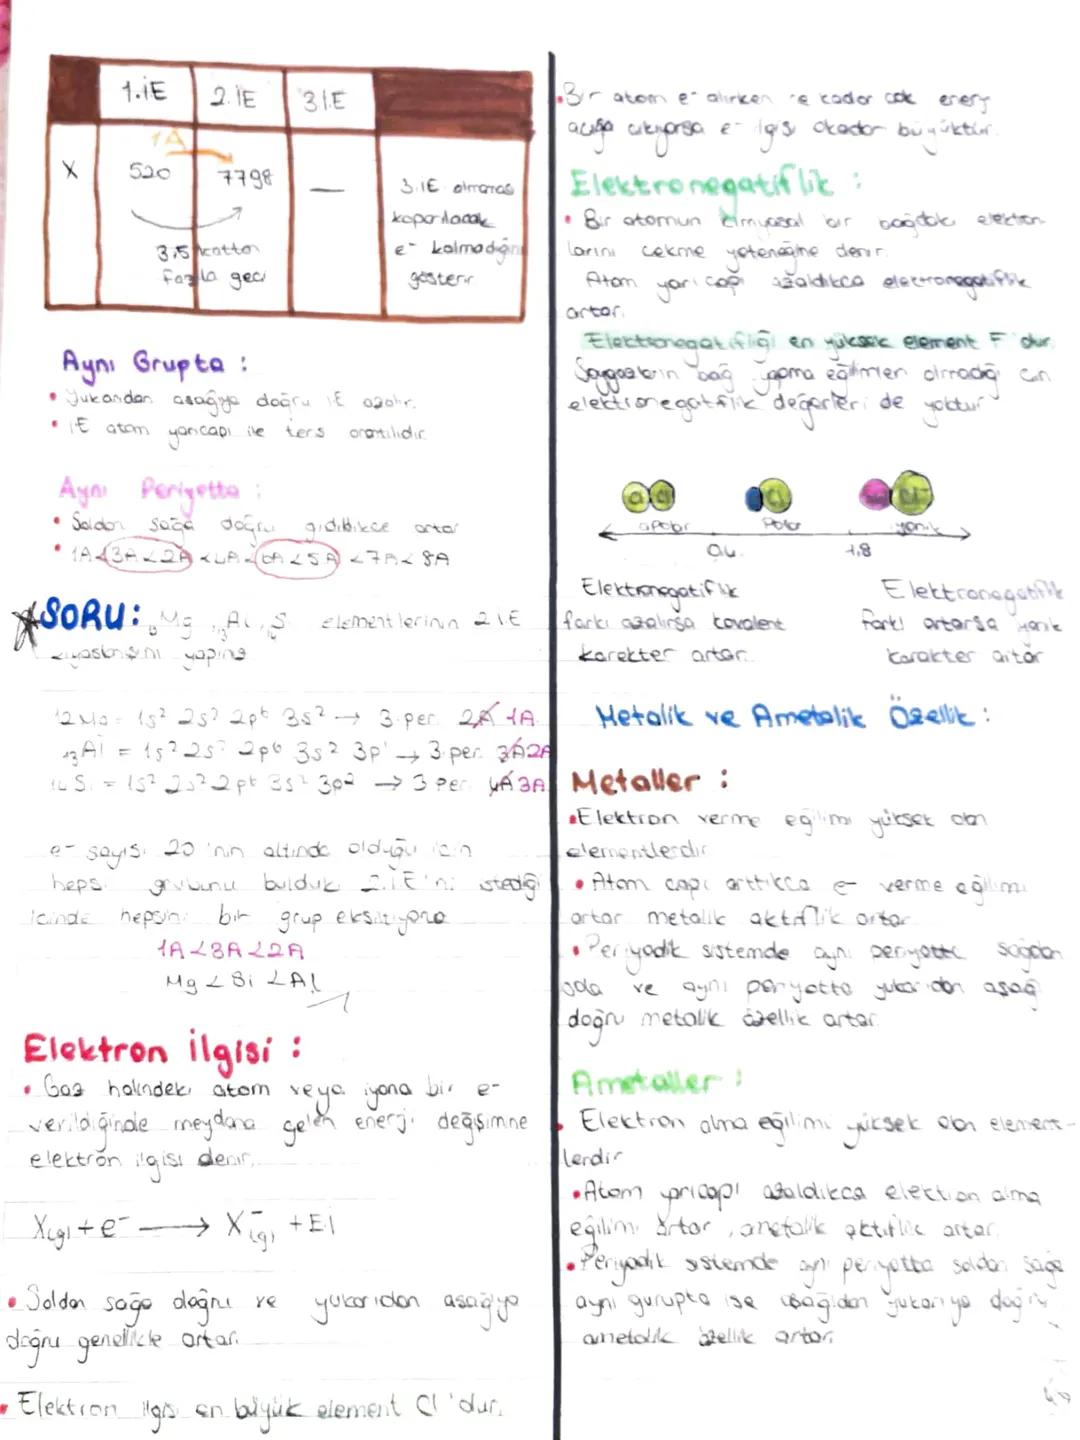 1.İE 2.İE 3.İE
1A
X 520 7798 —
3,5 kattan
fazla geçi
3.İE olmaması
koparılacak
e⁻ kalmadığını
gösterir
Aynı Grupta :
• Yukarıdan aşağıya doğru İE azalır.
• İE atom yarıçapı ile ters orantılıdır.
Aynı Periyotta :
• Soldan sağa doğru gidildikçe artar
• 1A<3A<2A<4A<6A<5A<7A<8A
SORU: Mg, ₁₃Al, ₁₄Si elementlerinin 2.İE
kıyaslamasını yapınız
12Mg = 1s² 2s² 2p⁶ 3s² → 3.per. 2A 1A
13Al = 1s² 2s² 2p⁶ 3s² 3p¹ → 3.per. 3A 2A
14Si = 1s² 2s² 2p⁶ 3s² 3p² → 3.per. 4A 3A
e⁻ sayısı 20'nin altında olduğu için
hepsi grubunu bulduk 2.İE'ni istediği
içinde hepsini bir grup eksiltiyoruz
1A<3A<2A
Mg < Si < Al
Elektron ilgisi :
• Gaz halindeki atom veya iyona bir e⁻
verildiğinde meydana gelen enerji değişimne
elektron ilgisi denir.
X(g) + e⁻ → X⁻(g) + Eİ
• Soldan sağa doğru ve yukarıdan aşağıya
doğru genellikle artar.
• Elektron ilgisi en büyük element Cl 'dur.
• Bir atom e⁻ alırken ne kadar çok enerji
açığa çıkıyorsa e⁻ ilgisi okadar büyüktür.
Elektronegatiflik :
• Bir atomun kimyasal bir bağdaki elektron-
larını çekme yeteneğine denir.
Atom yarıçapı azaldıkça elektronegatiflik
artar.
Elektronegatifliği en yüksek element F 'dur.
Soygazların bağ yapma eğilimleri olmadığı için
elektronegatiflik değerleri de yoktur
Cl Cl Cl Cl⁻
apolar Polar iyonik
0,4 1,8
Elektronegatiflik
farkı azalırsa kovalent
karekter artar.
Elektronegatiflik
farkı artarsa iyonik
karakter artar
Metalik ve Ametalik Özellik :
Metaller :
• Elektron verme eğilimi yüksek olan
elementlerdir
• Atom çapı arttıkça e⁻ verme eğilimi
artar metalik aktiflik artar
• Periyodik sistemde aynı periyotta sağdan
sola ve aynı periyotta yukarıdan aşağı
doğru metalik özellik artar.
Ametaller :
• Elektron alma eğilimi yüksek olan element-
lerdir
• Atom yarıçapı azaldıkça elektron alma
eğilimi artar, ametalik aktiflik artar.
• Periyodik sistemde aynı periyotta soldan sağa
aynı gurupta ise aşağıdan yukarıya doğru
ametalik özellik artar.